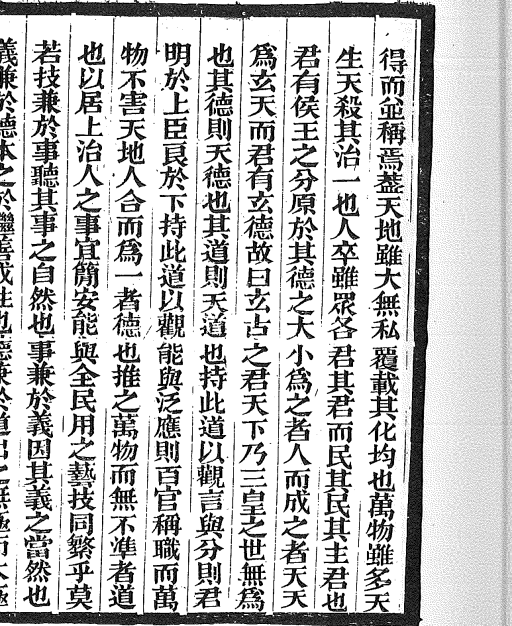 得而並稱焉蓋天地雖大無私覆載其化均也萬物雖多天
生天殺其治一也人卒雖眾各君其君而民其民其主君也
君有侯王之分原於其德之大小為之者人而成之者天天
為玄天而君有玄德故曰玄古之君天下乃三皇之世無為
也其德則天德也其道則天道也持此道以觀言與分則君
明於上臣良於下持此道以觀能與泛應則百官稱職而萬
物不害天地人合而為一者德也推之萬物而無不準者道
也以居上治人之事宜簡安能與全民用之藝技同繁乎莫
若技兼於事聽其事之自然也事兼於義因其義之當然也
義兼於德本之於繼善成性也德兼於道出之無極而太極